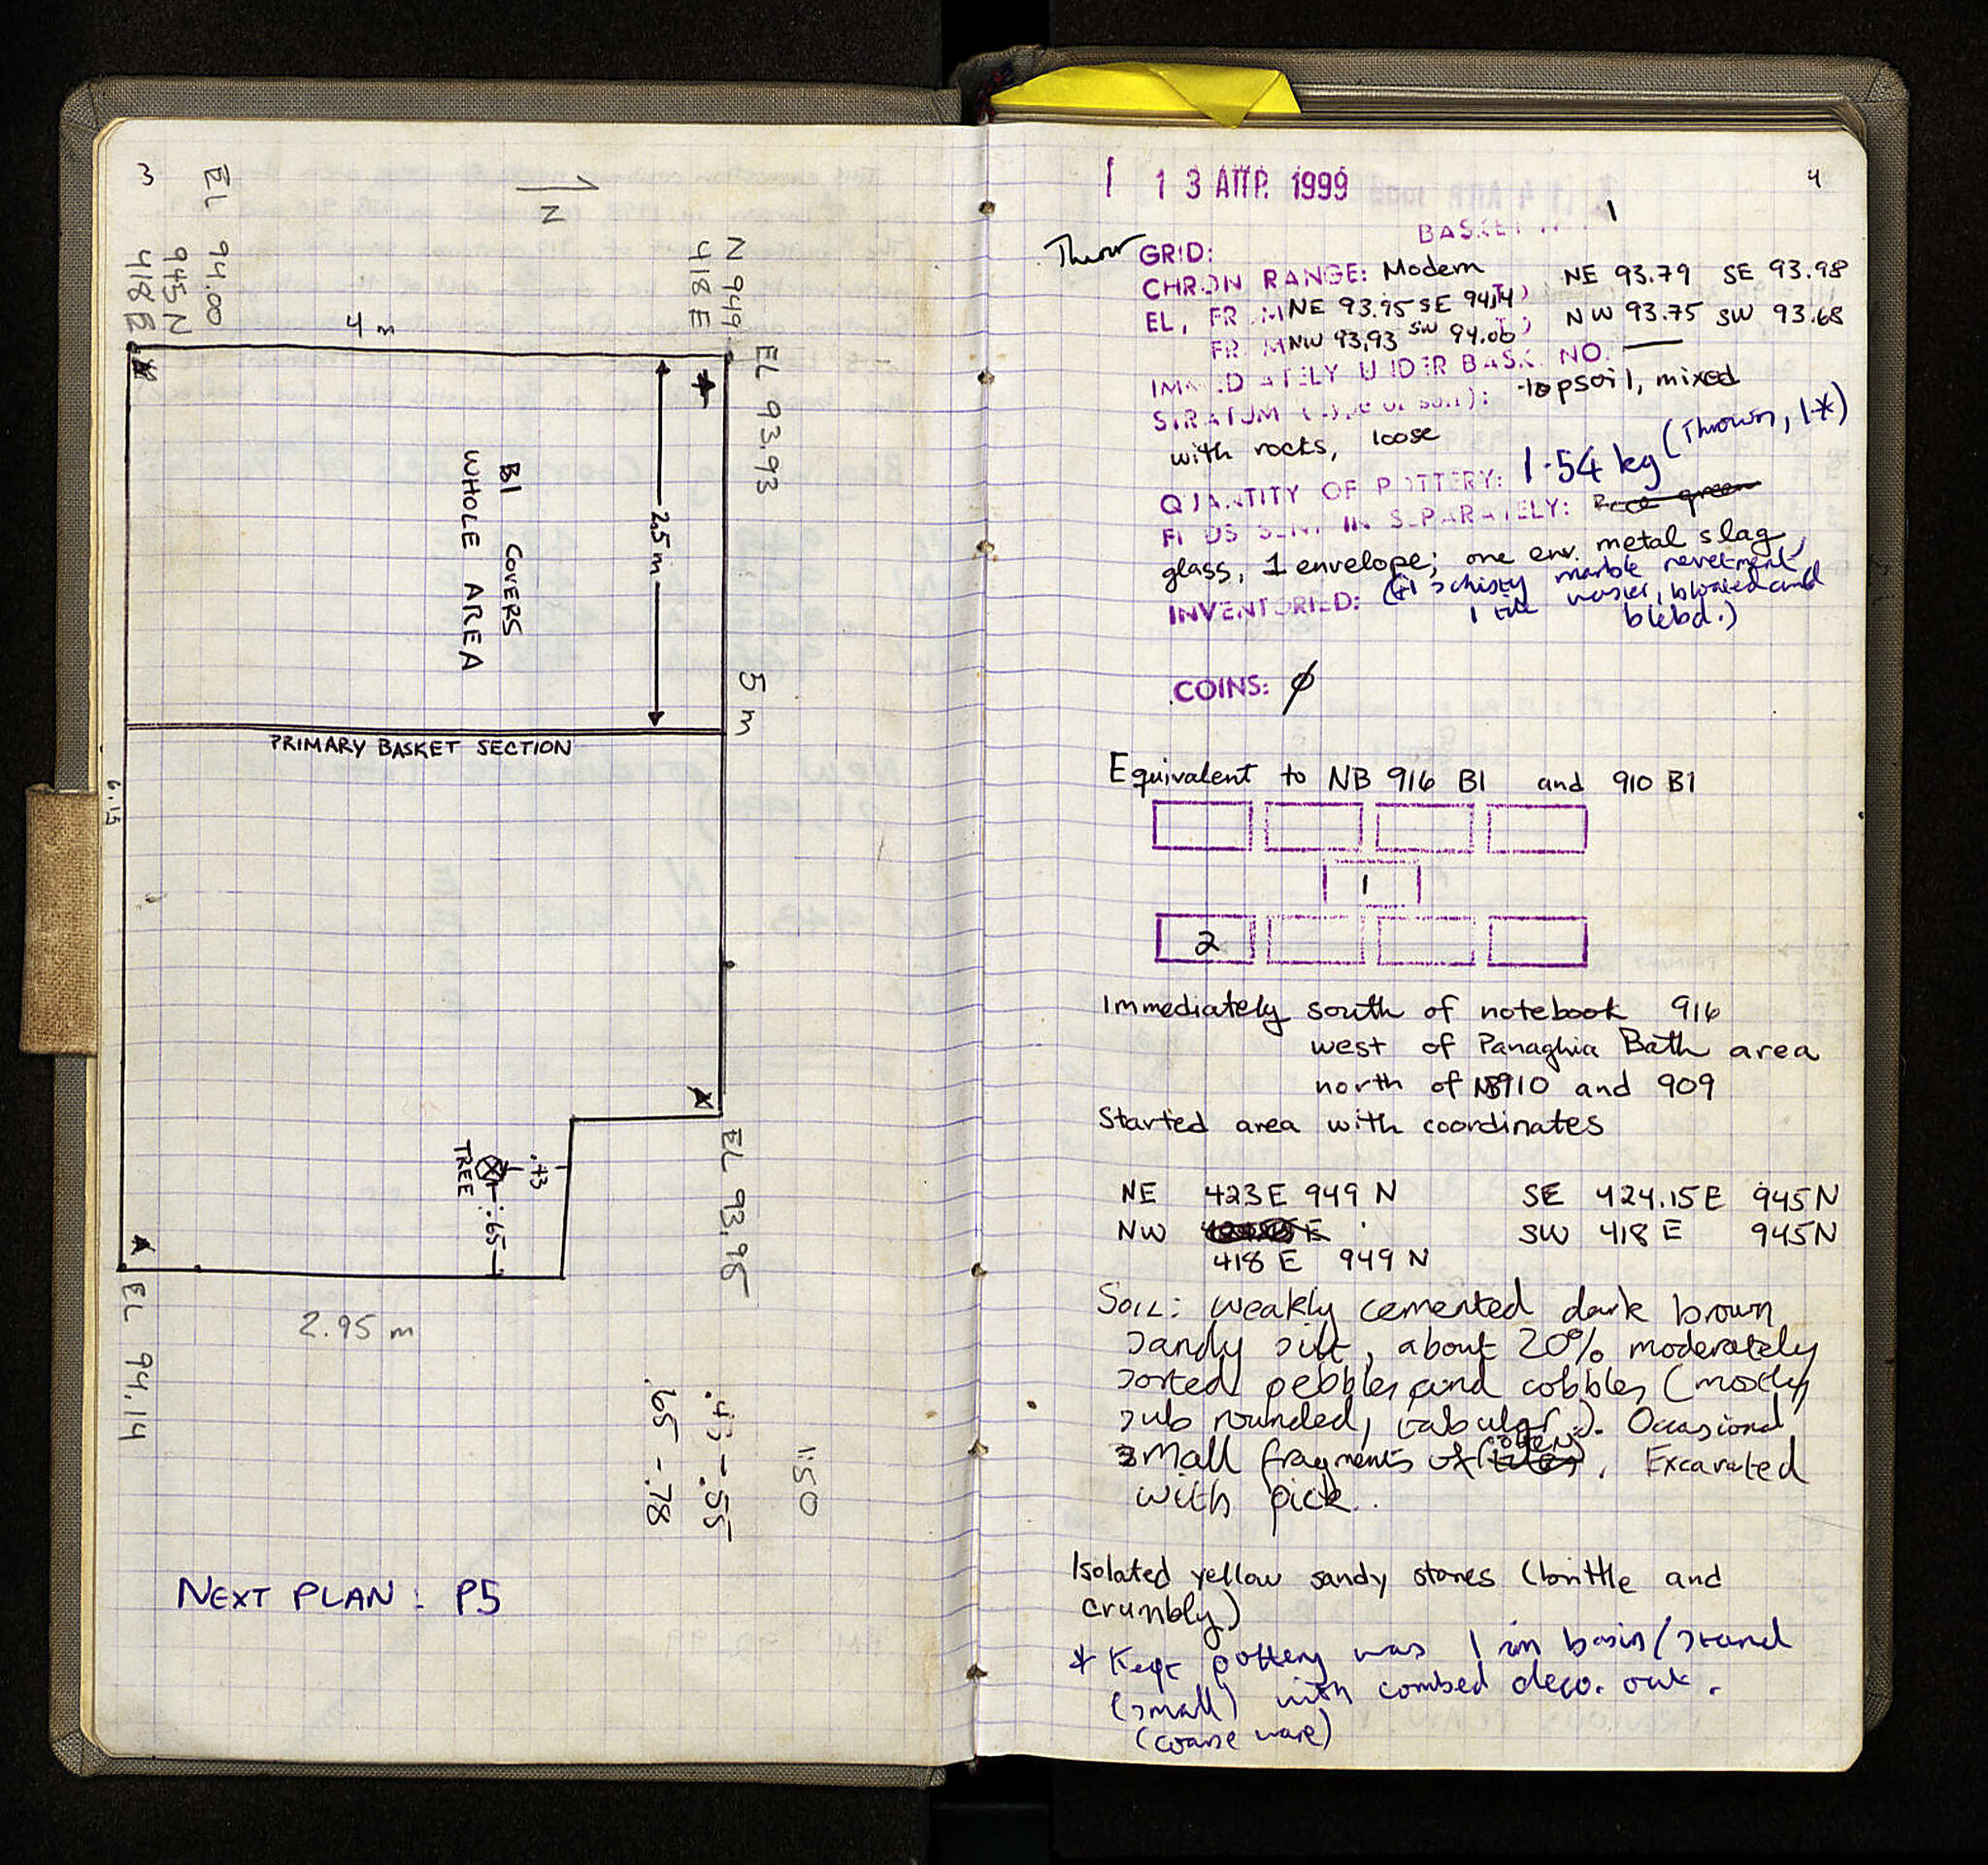 3
EL 94.00
945 N
418 E
N
N 949
418 E
4 m
EL 93.93
2.5 m
B1 COVERS
WHOLE AREA
5 m
PRIMARY BASKET SECTION
6.15
TREE
.43
.65
EL 93.95
EL 94.14
2.95 m
.43 - .55
.65 - .78
1:50
NEXT PLAN: P5
4
1 13 ΑΠΡ. 1999
BASKET 1
Throw GRID:
CHRON RANGE: Modern NE 93.79 SE 93.98
EL, FROM NE 93.95 SE 94.14 NW 93.75 SW 93.68
FROM NW 93.93 SW 94.06
IMMEDIATELY UNDER BASK. NO. —
STRATUM (type of soil): topsoil, mixed
with rocks, loose
QUANTITY OF POTTERY: 1.54 kg (Thrown, 1*)
FINDS SENT IN SEPARATELY: green
glass, 1 envelope; one env. metal slag,
(+1 schisty marble revetment,
INVENTORIED: 1 tile waster, bloated and
blebd.)
COINS: ∅
Equivalent to NB 916 B1 and 910 B1
1
2
Immediately south of notebook 916
west of Panaghia Bath area
north of NB910 and 909
Started area with coordinates
NE 423 E 949 N SE 424.15 E 945 N
NW SW 418 E 945 N
418 E 949 N
SOIL: weakly cemented dark brown
sandy silt, about 20% moderately
sorted pebbles and cobbles (mostly
sub rounded, tabular). Occasional
small fragments of. Excavated
with pick.
Isolated yellow sandy stones (brittle and
crumbly)
* Kept pottery was 1 rim basin/stand
(small) with combed deco. out.
(coarse ware)